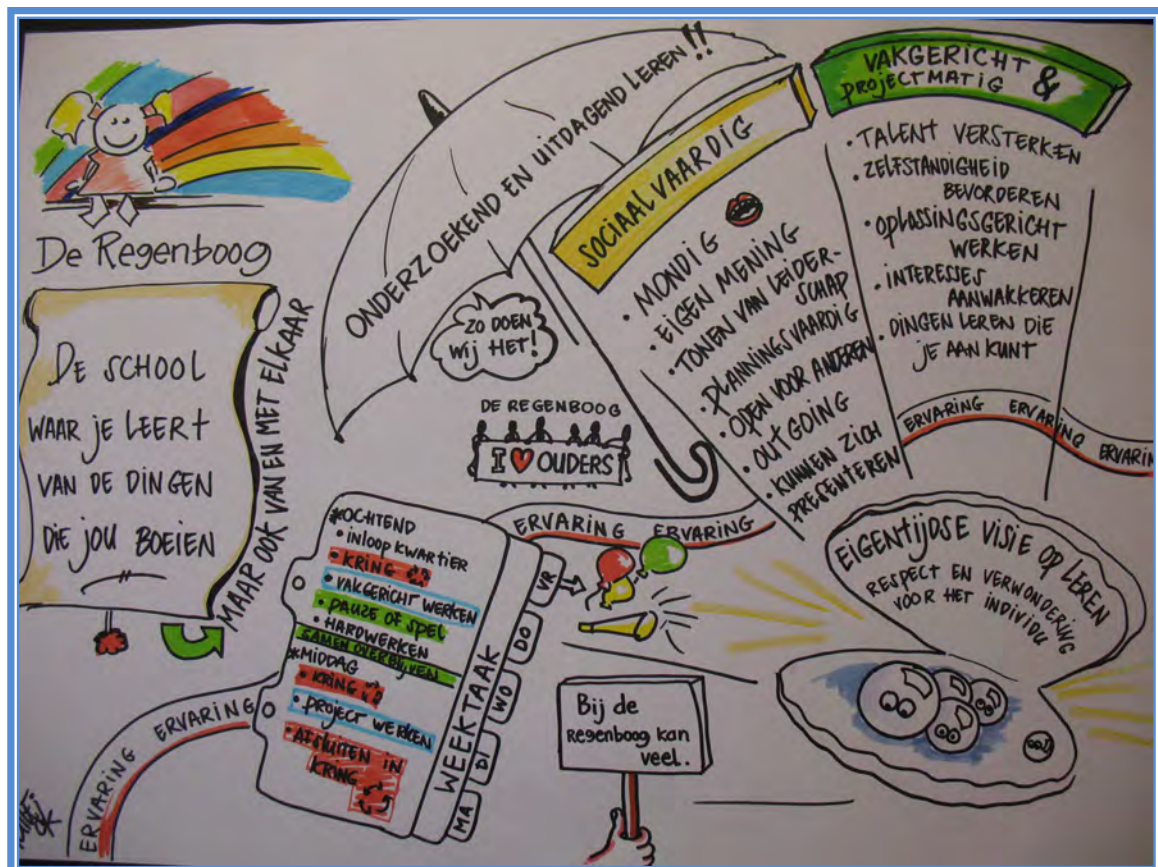 De Regenboog
De SCHOOL
WAAR je LEERT
VAN DE DINGEN
DIE jOU BOEIEN
MAAR OOK VAN EN MET ELKAAR
ONDERZOEKEND EN UITDAGEND LEREN!!
ZO DOEN
Wij HET!
DE REGENBOOG
I ♥ OUDERS
SOCIAAL VAARDIG
• MONDIG
• EIGEN MENING
• TONEN VAN LEIDER-
SCHAP
• PLANNINGSVAARDIG
• OPEN VOOR ANDEREN
• OUTGOING
• KUNNEN ZICH
PRESENTEREN
VAKGERICHT &
PROJECTMATIG
• TALENT VERSTERKEN
• ZELFSTANDIGHEID
BEVORDEREN
• OPLOSSINGSGERICHT
WERKEN
• INTERESSES
AANWAKKEREN
• DINGEN LEREN DIE
jE AAN KUNT
ERVARING ERVARING ERVARIN
ERVARING ERVARING
*OCHTEND
• INLOOP KWARTIER
• KRING
• VAKGERICHT WERKEN
• PAUZE OF SPEL
• HARDWERKEN
SAMEN OVERBLIJVEN
*MIDDAG
• KRING
• PROJECT WERKEN
• AFSLUITEN IN
KRING
WEEKTAAK
MA
DI
WO
DO
VR
ERVARING ERVARING
Bij de
Regenboog kan
veel.
EIGENTIJDSE VISIE OP LEREN
RESPECT EN VERWONDERING
VOOR HET INDIVIDU